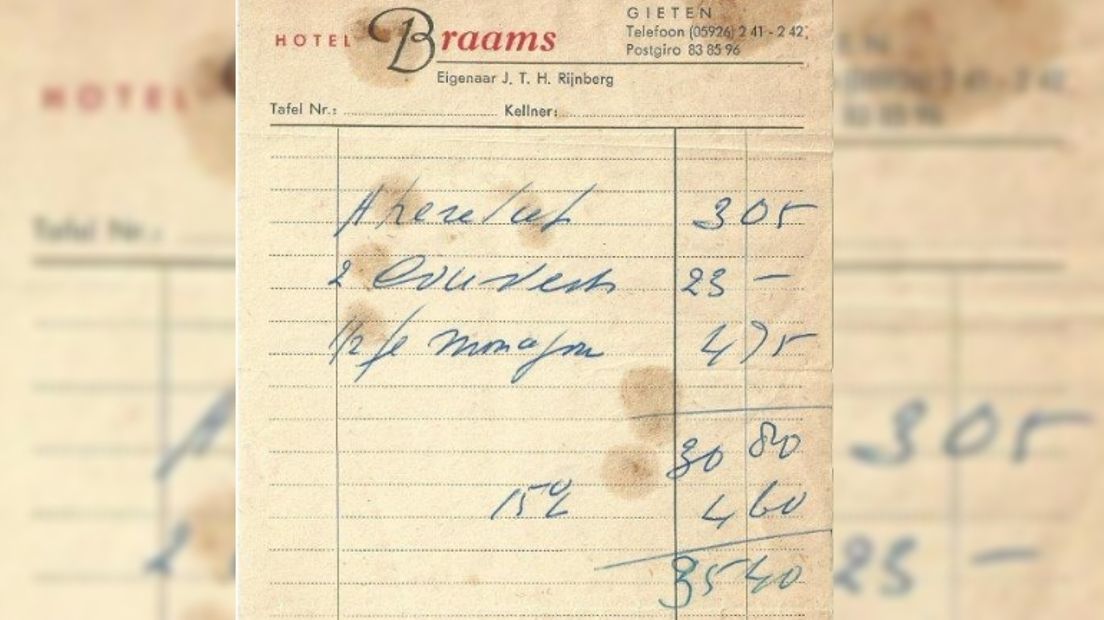 HOTEL Braams
GIETEN
Telefoon (05926) 2 41 - 2 42
Postgiro 83 85 96
Eigenaar J. T. H. Rijnberg
Tafel Nr.: Kellner:
305
2 23 -
1/2 fl 475
30 80
15% 4 60
35 40